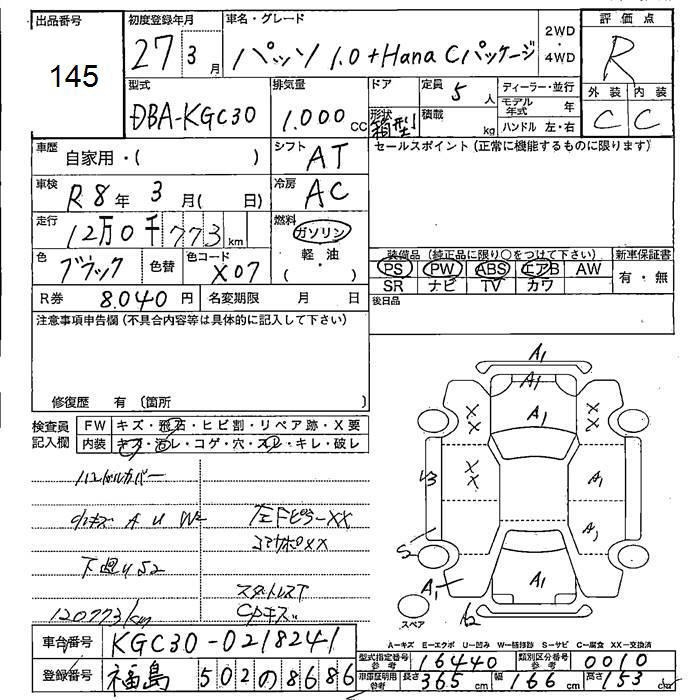 出品番号 初度登録年月 車名・グレード 2WD・4WD 評価点
145 27 3月 パッソ 1.0+Hana Cパッケージ R
型式 排気量 ドア 定員 5人 ディーラー・並行 外装 内装
DBA-KGC30 1.000cc 形状 箱型 積載 kg モデル年式 年 C C
ハンドル 左・右
車歴 自家用・( ) シフト AT セールスポイント (正常に機能するものに限ります)
車検 R8年3月( 日) 冷房 AC
走行 12万0千773km 燃料 ガソリン
軽・油
( )
色 ブラック 色替 色コード X07
装備品 (純正品に限り○をつけて下さい) 新車保証書
PS PW ABS エアB AW 有・無
SR ナビ TV カワ
R券 8.040円 名変期限 月 日 後日品
注意事項申告欄 (不具合内容等は具体的に記入して下さい)
修復歴 有 (箇所 )
検査員記入欄 FW キズ・飛石・ヒビ割・リペア跡・X要
内装 キズ・汚レ・コゲ・穴・スレ・キレ・破レ
ハンドルカバー
小キズ A U W2 左FピラーXX
コアサポXX
下廻りS2
スタットレスT
120773km CPキズ
A1
A1
A1
XX XX
XX
U3 A1
A1
S2
A1 A1
スペア A2
A-キズ E-エクボ U-凹み W-補修跡 S-サビ C-腐食 XX-交換済
車台番号 KGC30-0218241
型式指定番号 参考 16440 類別区分番号 参考 0010
登録番号 福島 502の8686
車庫証明用 参考 長さ 365cm 幅 166cm 高さ 153cm